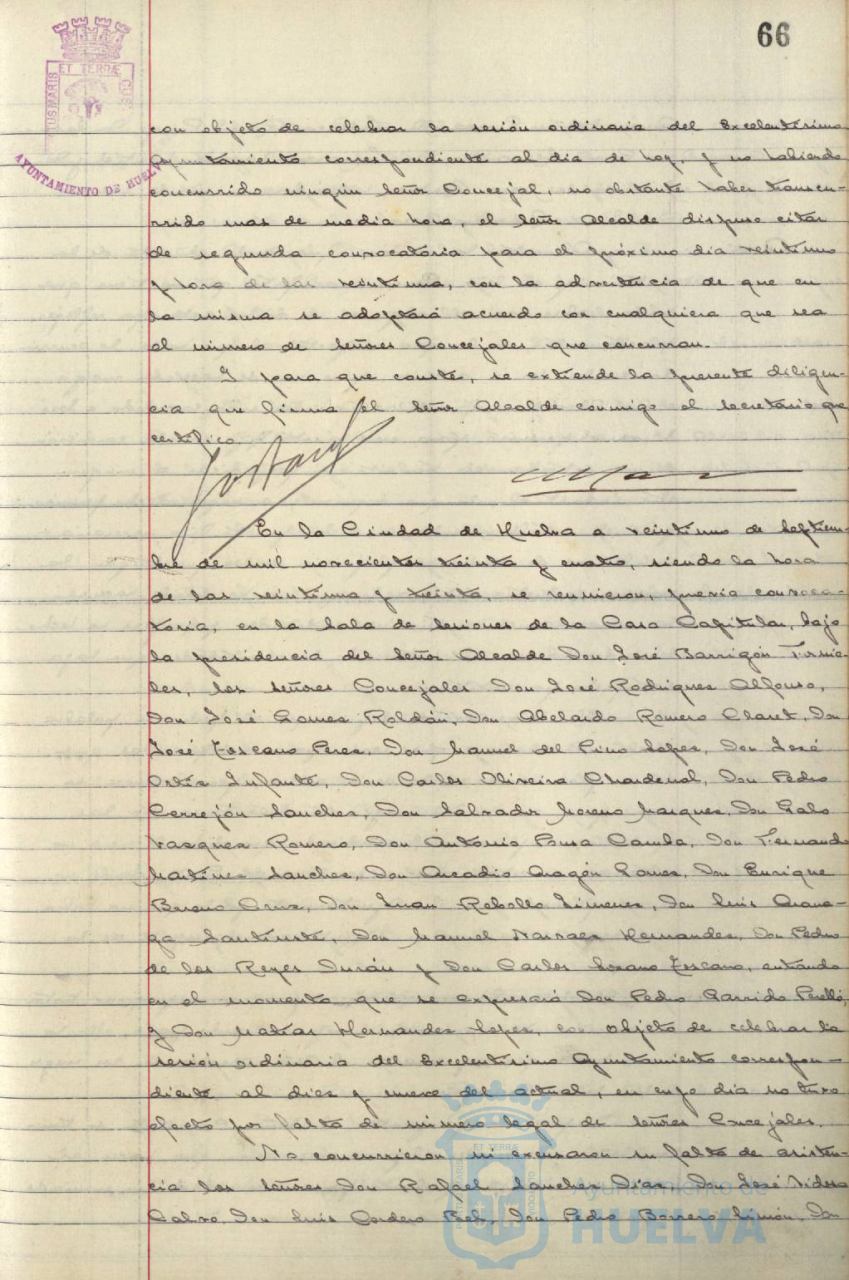 66
ET TERRÆ
AYUNTAMIENTO DE HUELVA
con objeto de celebrar la sesión ordinaria del Excelentísimo
Ayuntamiento correspondiente al dia de hoy, y no habiendo
concurrido ningún Señor Concejal, no obstante haber transcu-
rrido mas de media hora, el Señor Alcalde dispuso citar
de segunda convocatoria para el próximo dia veintiuno
y hora de las veintiuna, con la advertencia de que en
la misma se adoptará acuerdo con cualquiera que sea
el número de Señores Concejales que concurran.
Y para que conste, se extiende la presente diligen-
cia que firma el Señor Alcalde conmigo el Secretario que
certifico.
En la Ciudad de Huelva a veintiuno de Septiem-
bre de mil novecientos treinta y cuatro, siendo la hora
de las veintiuna y treinta, se reunieron, previa convoca-
toria, en la Sala de Sesiones de la Casa Capitular, bajo
la presidencia del Señor Alcalde Don José Barrigón Fornie-
les, los Señores Concejales Don José Rodriguez Alfonso,
Don José Gomez Roldán, Don Abelardo Romero Claret, Don
José Toscano Perez, Don Manuel del Pino Lopez, Don José
Ortiz Infante, Don Carlos Oliveira Chardenal, Don Pedro
Cerrejón Sanchez, Don Salvador Moreno Marquez, Don
Vazquez Romero, Don Antonio Pousa Camba, Don Fernando
Martínez Sanchez, Don Arcadio Aragón Gomez, Don Enrique
Bueno Cruz, Don Juan Rebollo Jimenez, Don Luis
Don Manuel Narvaez Hernandez, Don Pedro
de los Reyes Durán y Don Carlos Lozano Toscano, entrando
en el momento que se expresará Don Pedro Garrido Perelló,
y Don Matías Hernandez Lopez, con objeto de celebrar la
sesión ordinaria del Excelentísimo Ayuntamiento correspon-
diente al diez y nueve del actual, en cuyo dia no tuvo
efecto por falta de número legal de Señores Concejales.
No concurrieron ni excusaron su falta de asisten-
cia los Señores Don Rafael Sanchez Diaz, Don José Tidera
Calvo, Don Luis Cordero Bel, Don Pedro Borrero Limón, Don
Ayuntamiento de
HUELVA